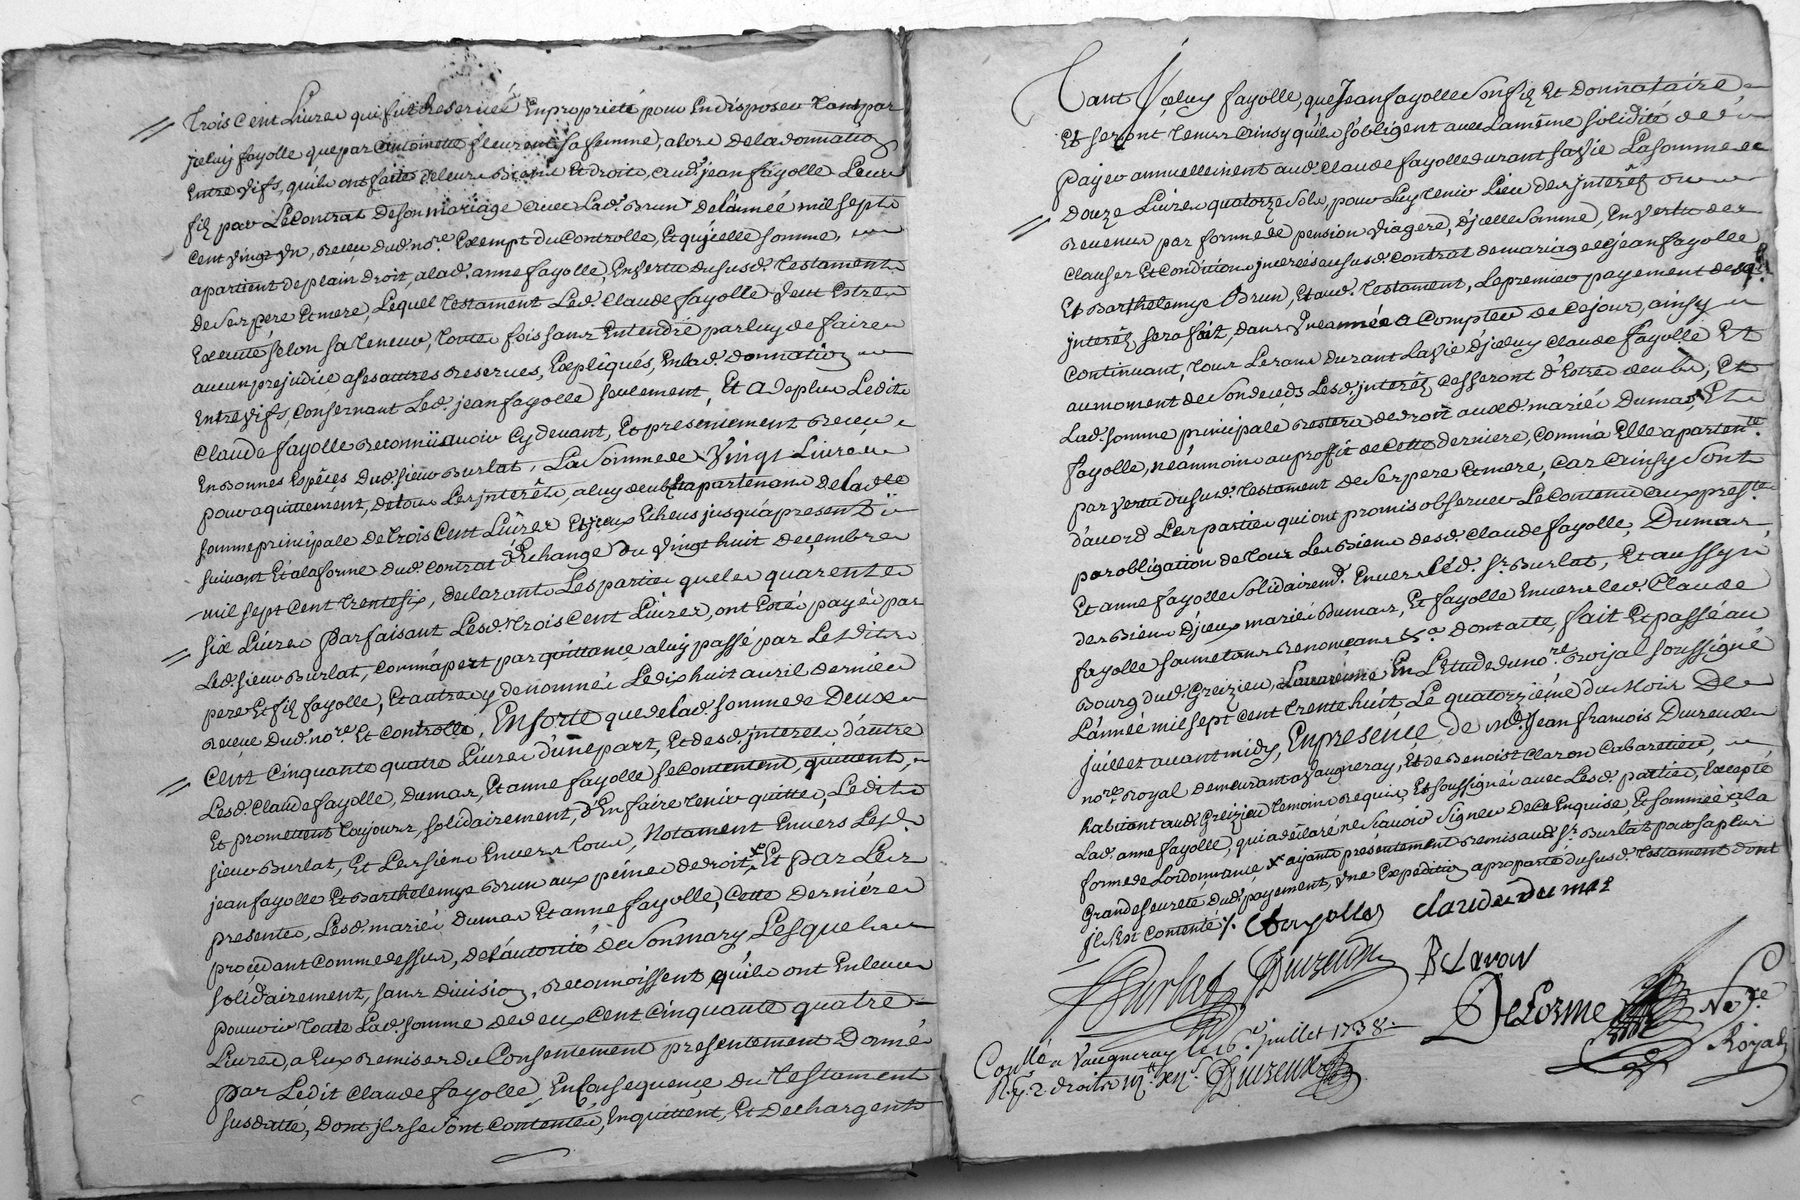 trois Cent Livres qui fut Reservée En propriété pour En disposer tant par
jceluy fayolle que par antoinette fleurent sa femme, alors de la donnation
Entre vifs, qu'ils ont faite de leurs Biens Et droits, aud. jean fayolle Leur
fils par Le Contrat de son mariage avec Lad. Brun de l'année mil sept
cent vingt un, Reçeu dud. nore. Exempt du Controlle, Et qu'jcelle somme,
apartient de plain droit, a lad. anne fayolle, En vertu du susd. testament
de ses pere Et mere, Lequel testament Led. Claude fayolle veut Estre
Exécuté selon sa teneur, toute fois sans Entendre par luy de faire
aucun préjudice a ses autres Reserves, Expliqués, En lad. donnation
Entre vifs, Consernant Led. jean fayolle seulement, Et a de plus Ledit
Claude fayolle Reconnu avoir Cy devant, Et présentement Reçeu
En Bonnes Espêces dud. sieur Burlat, La somme de Vingt Livres
pour aquittement, de tous Les jnterêts, a luy deubs apartenans de lad.
somme principale de trois Cent Livres Et jceux Echeus jusqu'à present
suivant Et à la forme dud. Contrat d'Echange du vingt huit deçembre
mil sept Cent trente six, declarants Les parties que les quarente
six Livres parfaisant Lesd. trois Cent Livres, ont Esté payé par
Led. sieur Burlat, Comm'apert par quittance a luy passé par Lesdits
pere Et fils fayolle, Et autres y denommés Le dix huit avril dernier
Reçeue dud. nore. Et Controllé, En sorte que de lad. somme de Deux
Cent Cinquante quatre Livres d'une part, Et desd. jnterets d'autre
Lesd. Claude fayolle, Dumas, Et anne fayolle se Contentent, quittent,
Et promettent toujours, solidairement, d'En faire tenir quitte, Ledit
sieur Burlat, Et Les siens Envers tous, Notament Envers Lesd.
jean fayolle Et Barthelemye Brun aux peines de droit, x Et par Les
presentes, Lesd. mariés Dumas Et anne fayolle, Cette derniére
proçédant Comme dessus, de l'autorité de Son mary, Lesquels
solidairement, sans division, Reconnoissent qu'ils ont En leur
pouvoir toute Lad. somme de deux Cent Cinquante quatre
Livres, a Eux Remises du Consentement présentement Donné
par Ledit Claude fayolle, En Consequençe du testament
susdatté, dont jls se sont Contentés, En quittent, Et dechargent
Tant jceluy fayolle, que Jean fayolle son fils Et Donnataire
Et seront tenus Ainsy qu'ils s'obligent avec La même solidité de
payer annuellement aud. Claude fayolle durant sa vie La somme de
douze Livres quatorze sols, pour luy tenir Lieu des jnterêts ou
Revenus par forme de pension viagere, d'jcelle somme, En vertu des
Clauses Et Conditions jncerées au susd. Contrat de mariage de jean fayolle
Et Barthelemye Brun, Et aud. testament, Le premier payement desqls.
jnterêts sera fait, dans Une année a Compter de ce jour, ainsy
Continuant, tous Les ans durant La vie d'jceluy Claude fayolle Et
au moment de son deceds Lesd. jnterêts cesseront d'Estre deubs, Et
Lad. somme principale Restera de droit auxd. mariés Dumas, Et
fayolle, néanmoins au proffit de Cette derniere, Comm'a Elle apartente.
par vertu du susd. testament de ses pere Et mere, Car Ainsy sont
d'acord Les parties qui ont promis observer Le Contenu aux prestes.
par obligation de tous Les Biens desd. Claude fayolle, Dumas,
Et anne fayolle solidairemt. Envers Led. sr. Burlat, Et aussy
des Biens d'jceux mariés Dumas, Et fayolle Envers led. Claude
fayolle soumetans Renonçans &a. Dont atte, fait Et passé au
Bourg dud. Greizieu, En L'Etude du nore. Roïjal soussigné
L'année mil sept cent trente huit, Le quatorziéme du Mois De
juillet avant midy, En présençe de Me. Jean françois Dureux
nore. Royal demeurant a Vaugneray, Et de Benoist Claron Cabaretier,
habitant aud. Greizieu temoins Requis, Et soussignés avec Lesd. parties, Excepté
Lad. anne fayolle, qui a déclaré ne sçavoir signer De ce Enquise, Et sommée a la
forme de L'ordonnance, x ajant présentement Remis aud. sr. Burlat pour sa plus
Grande seureté dud. payement, une Expedition aprouvée du susd. testament dont
jl s'est Contenté /. Cfayolle claude dumas
Burlat Dureux B Claron
Delorme Nore.
Royal
Conllé. a Vaugneray le 16e. juillet 1738
Dureux